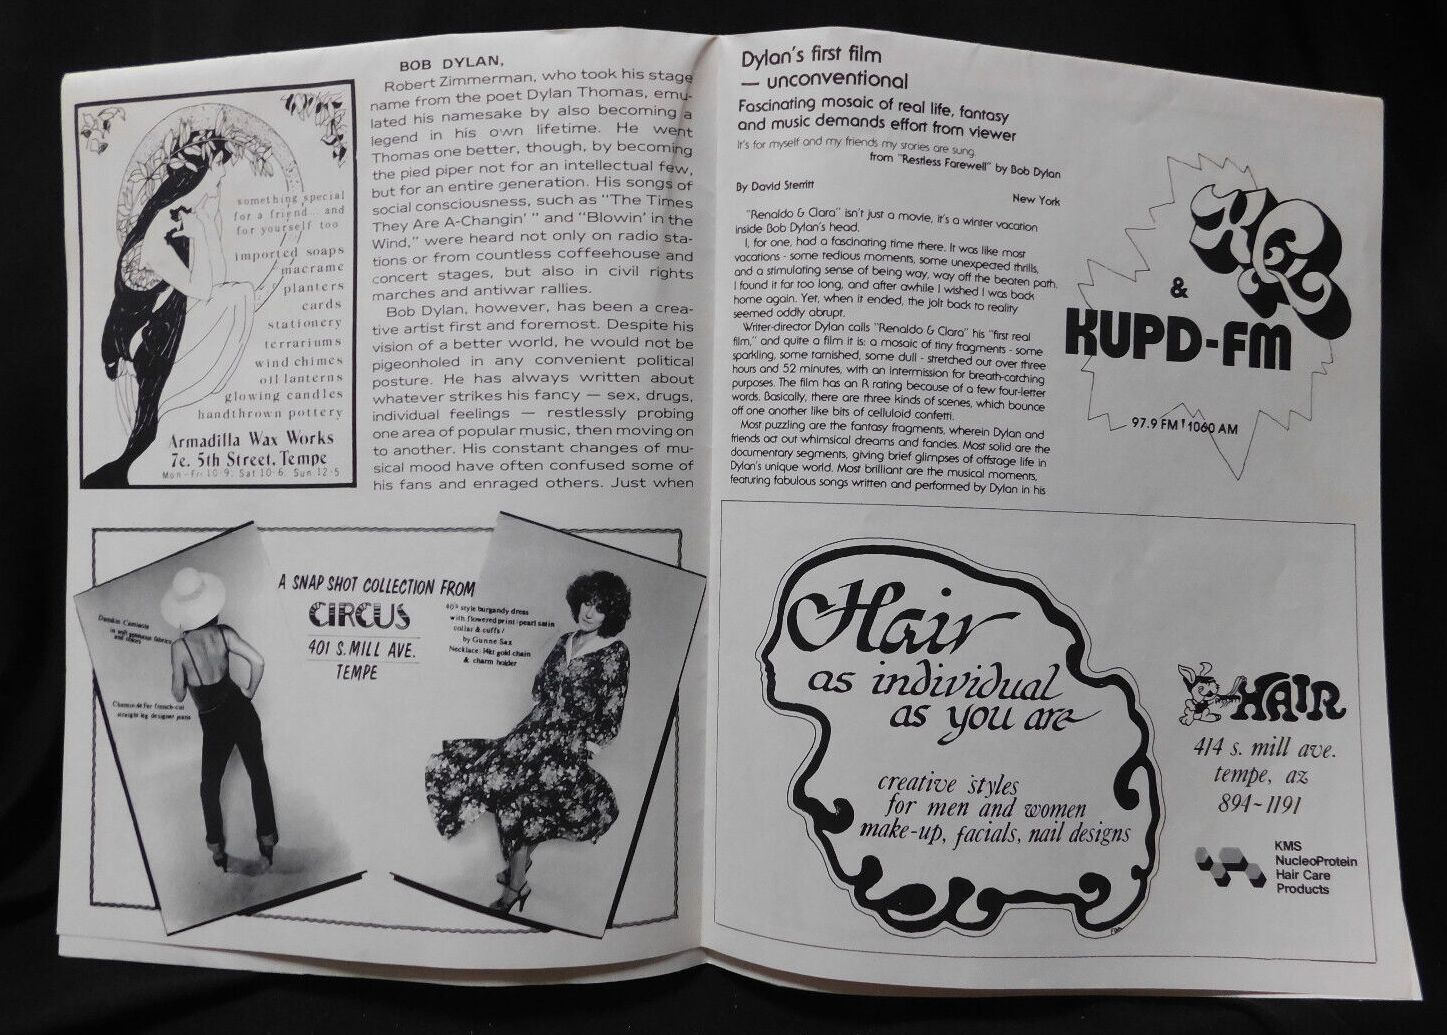 something special
for a friend... and
for yourself too
imported soaps
macrame
planters
cards
stationery
terrariums
wind chimes
oil lanterns
glowing candles
handthrown pottery
Armadilla Wax Works
7e. 5th Street, Tempe
Mon-Fri 10-9, Sat 10-6, Sun 12-5
BOB DYLAN,
Robert Zimmerman, who took his stage
name from the poet Dylan Thomas, emu-
lated his namesake by also becoming a
legend in his own lifetime. He went
Thomas one better, though, by becoming
the pied piper not for an intellectual few,
but for an entire generation. His songs of
social consciousness, such as "The Times
They Are A-Changin' " and "Blowin' in the
Wind," were heard not only on radio sta-
tions or from countless coffeehouse and
concert stages, but also in civil rights
marches and antiwar rallies.
Bob Dylan, however, has been a crea-
tive artist first and foremost. Despite his
vision of a better world, he would not be
pigeonholed in any convenient political
posture. He has always written about
whatever strikes his fancy — sex, drugs,
individual feelings — restlessly probing
one area of popular music, then moving on
to another. His constant changes of mu-
sical mood have often confused some of
his fans and enraged others. Just when
A SNAP SHOT COLLECTION FROM
CIRCUS
401 S. MILL AVE.
TEMPE
Danskin Camisole
in soft
and colors
French-cut
straight leg designer jeans
40's style burgandy dress
with flowered print-pearl satin
collar & cuffs/
by Gunne Sax
Necklace: 14kt gold chain
& charm holder
Dylan's first film
— unconventional
Fascinating mosaic of real life, fantasy
and music demands effort from viewer
It's for myself and my friends my stories are sung.
from "Restless Farewell" by Bob Dylan
By David Sterritt
New York
"Renaldo & Clara" isn't just a movie, it's a winter vacation
inside Bob Dylan's head.
I, for one, had a fascinating time there. It was like most
vacations - some tedious moments, some unexpected thrills,
and a stimulating sense of being way, way off the beaten path.
I found it far too long, and after awhile I wished I was back
home again. Yet, when it ended, the jolt back to reality
seemed oddly abrupt.
Writer-director Dylan calls "Renaldo & Clara" his "first real
film," and quite a film it is: a mosaic of tiny fragments - some
sparkling, some tarnished, some dull - stretched out over three
hours and 52 minutes, with an intermission for breath-catching
purposes. The film has an R rating because of a few four-letter
words. Basically, there are three kinds of scenes, which bounce
off one another like bits of celluloid confetti.
Most puzzling are the fantasy fragments, wherein Dylan and
friends act out whimsical dreams and fancies. Most solid are the
documentary segments, giving brief glimpses of offstage life in
Dylan's unique world. Most brilliant are the musical moments,
featuring fabulous songs written and performed by Dylan in his
&
KUPD-FM
97.9 FM 1060 AM
Hair
as individual
as you are
creative styles
for men and women
make-up, facials, nail designs
HAIR
414 s. mill ave.
tempe, az
894-1191
KMS
NucleoProtein
Hair Care
Products